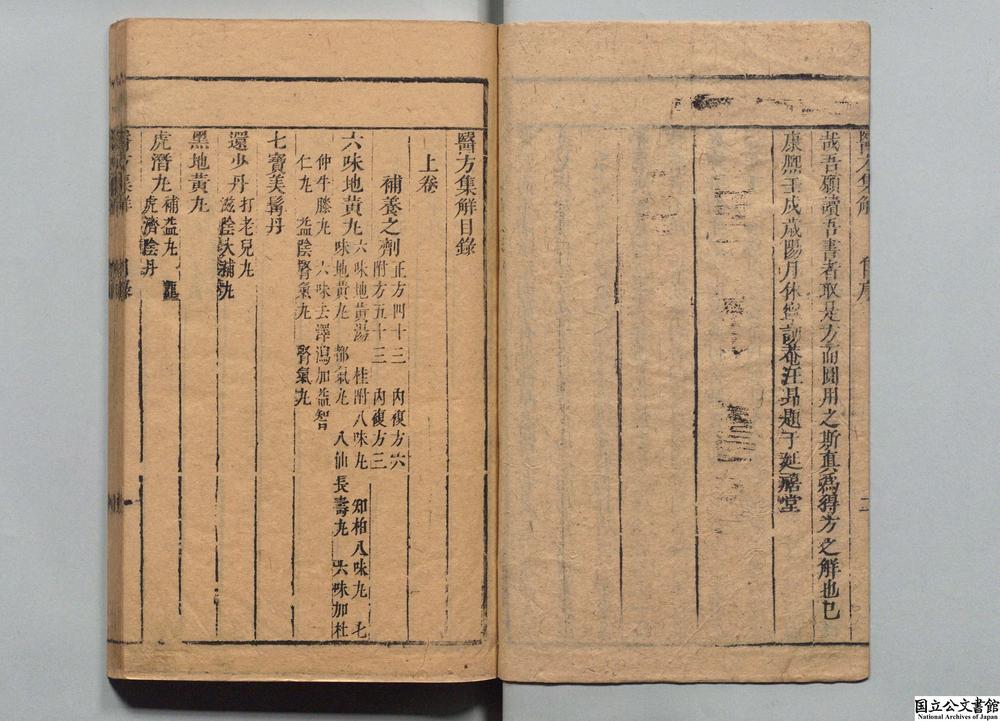 醫方集解 自序 二
哉吾願讀吾書者取是方而圓用之斯真爲得方之解也已
康熙壬戌歲陽月休寧訒菴汪昂題于延禧堂
醫方集解目錄
上卷
補養之劑 正方四十三 內複方六
附方五十三 內複方三
六味地黃丸 六味地黃湯 桂附八味丸 知柏八味丸 七
味地黃丸 都氣丸 八仙長壽丸 六味加杜
仲牛膝丸 六味去澤瀉加益智
仁丸 益陰腎氣丸 腎氣丸
七寶美髯丹
還少丹 打老兒丸
滋陰大補丸
黑地黃丸
虎潛丸 補益丸 龍
虎濟陰丹
醫方集解 目錄 一
国立公文書館
National Archives of Japan